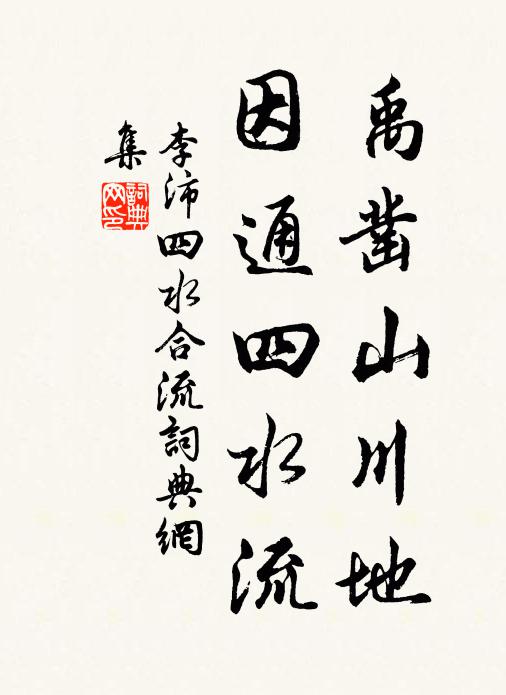 禹凿山川地
因通四水流
李沛四水合流詞典網
集
詞典
网印